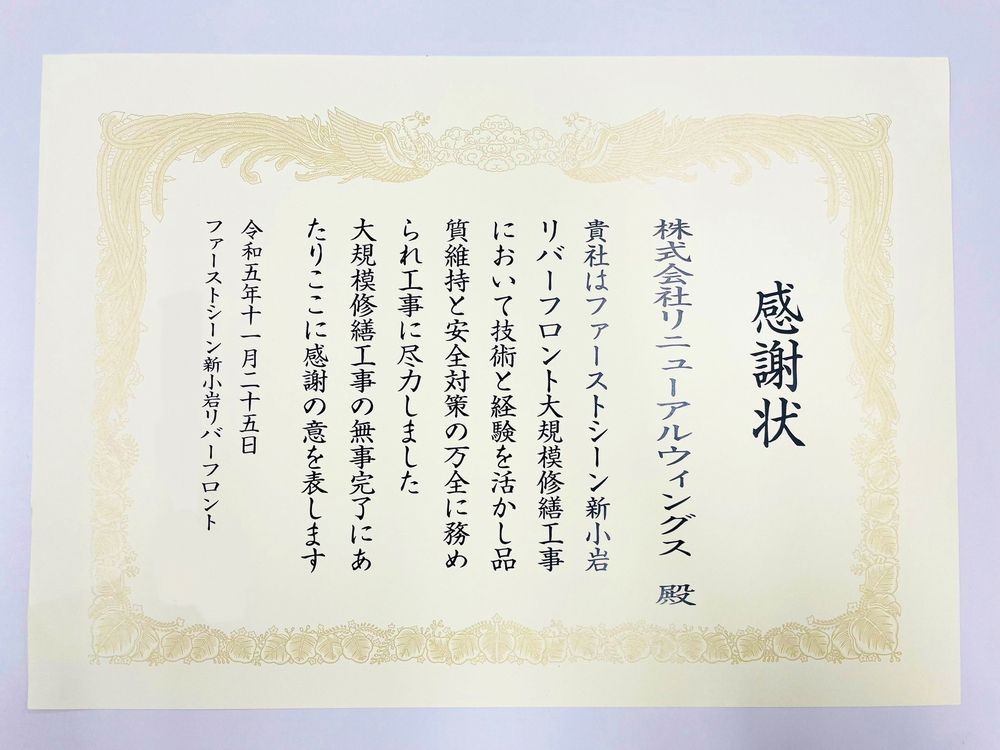 感謝状
株式会社リニューアルウィングス 殿
貴社はファーストシーン新小岩
リバーフロント大規模修繕工事
において技術と経験を活かし品
質維持と安全対策の万全に務め
られ工事に尽力しました
大規模修繕工事の無事完了にあ
たりここに感謝の意を表します
令和五年十一月二十五日
ファーストシーン新小岩リバーフロント